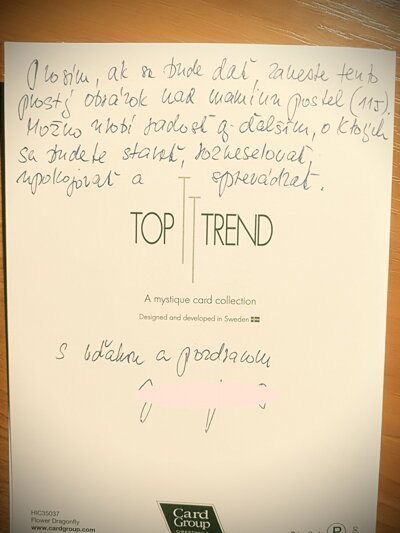 Prosím, ak sa bude dať, zaveste tento
prostý obrázok nad maminu posteľ (115).
Možno urobí radosť aj ďalším, o ktorých
sa budete starať, rozveseľovať,
upokojovať a sprevádzať.
TOP TT TREND
A mystique card collection
Designed and developed in Sweden
S vďakou a pozdravom
HIC35037
Flower Dragonfly
www.cardgroup.com
Card
Group